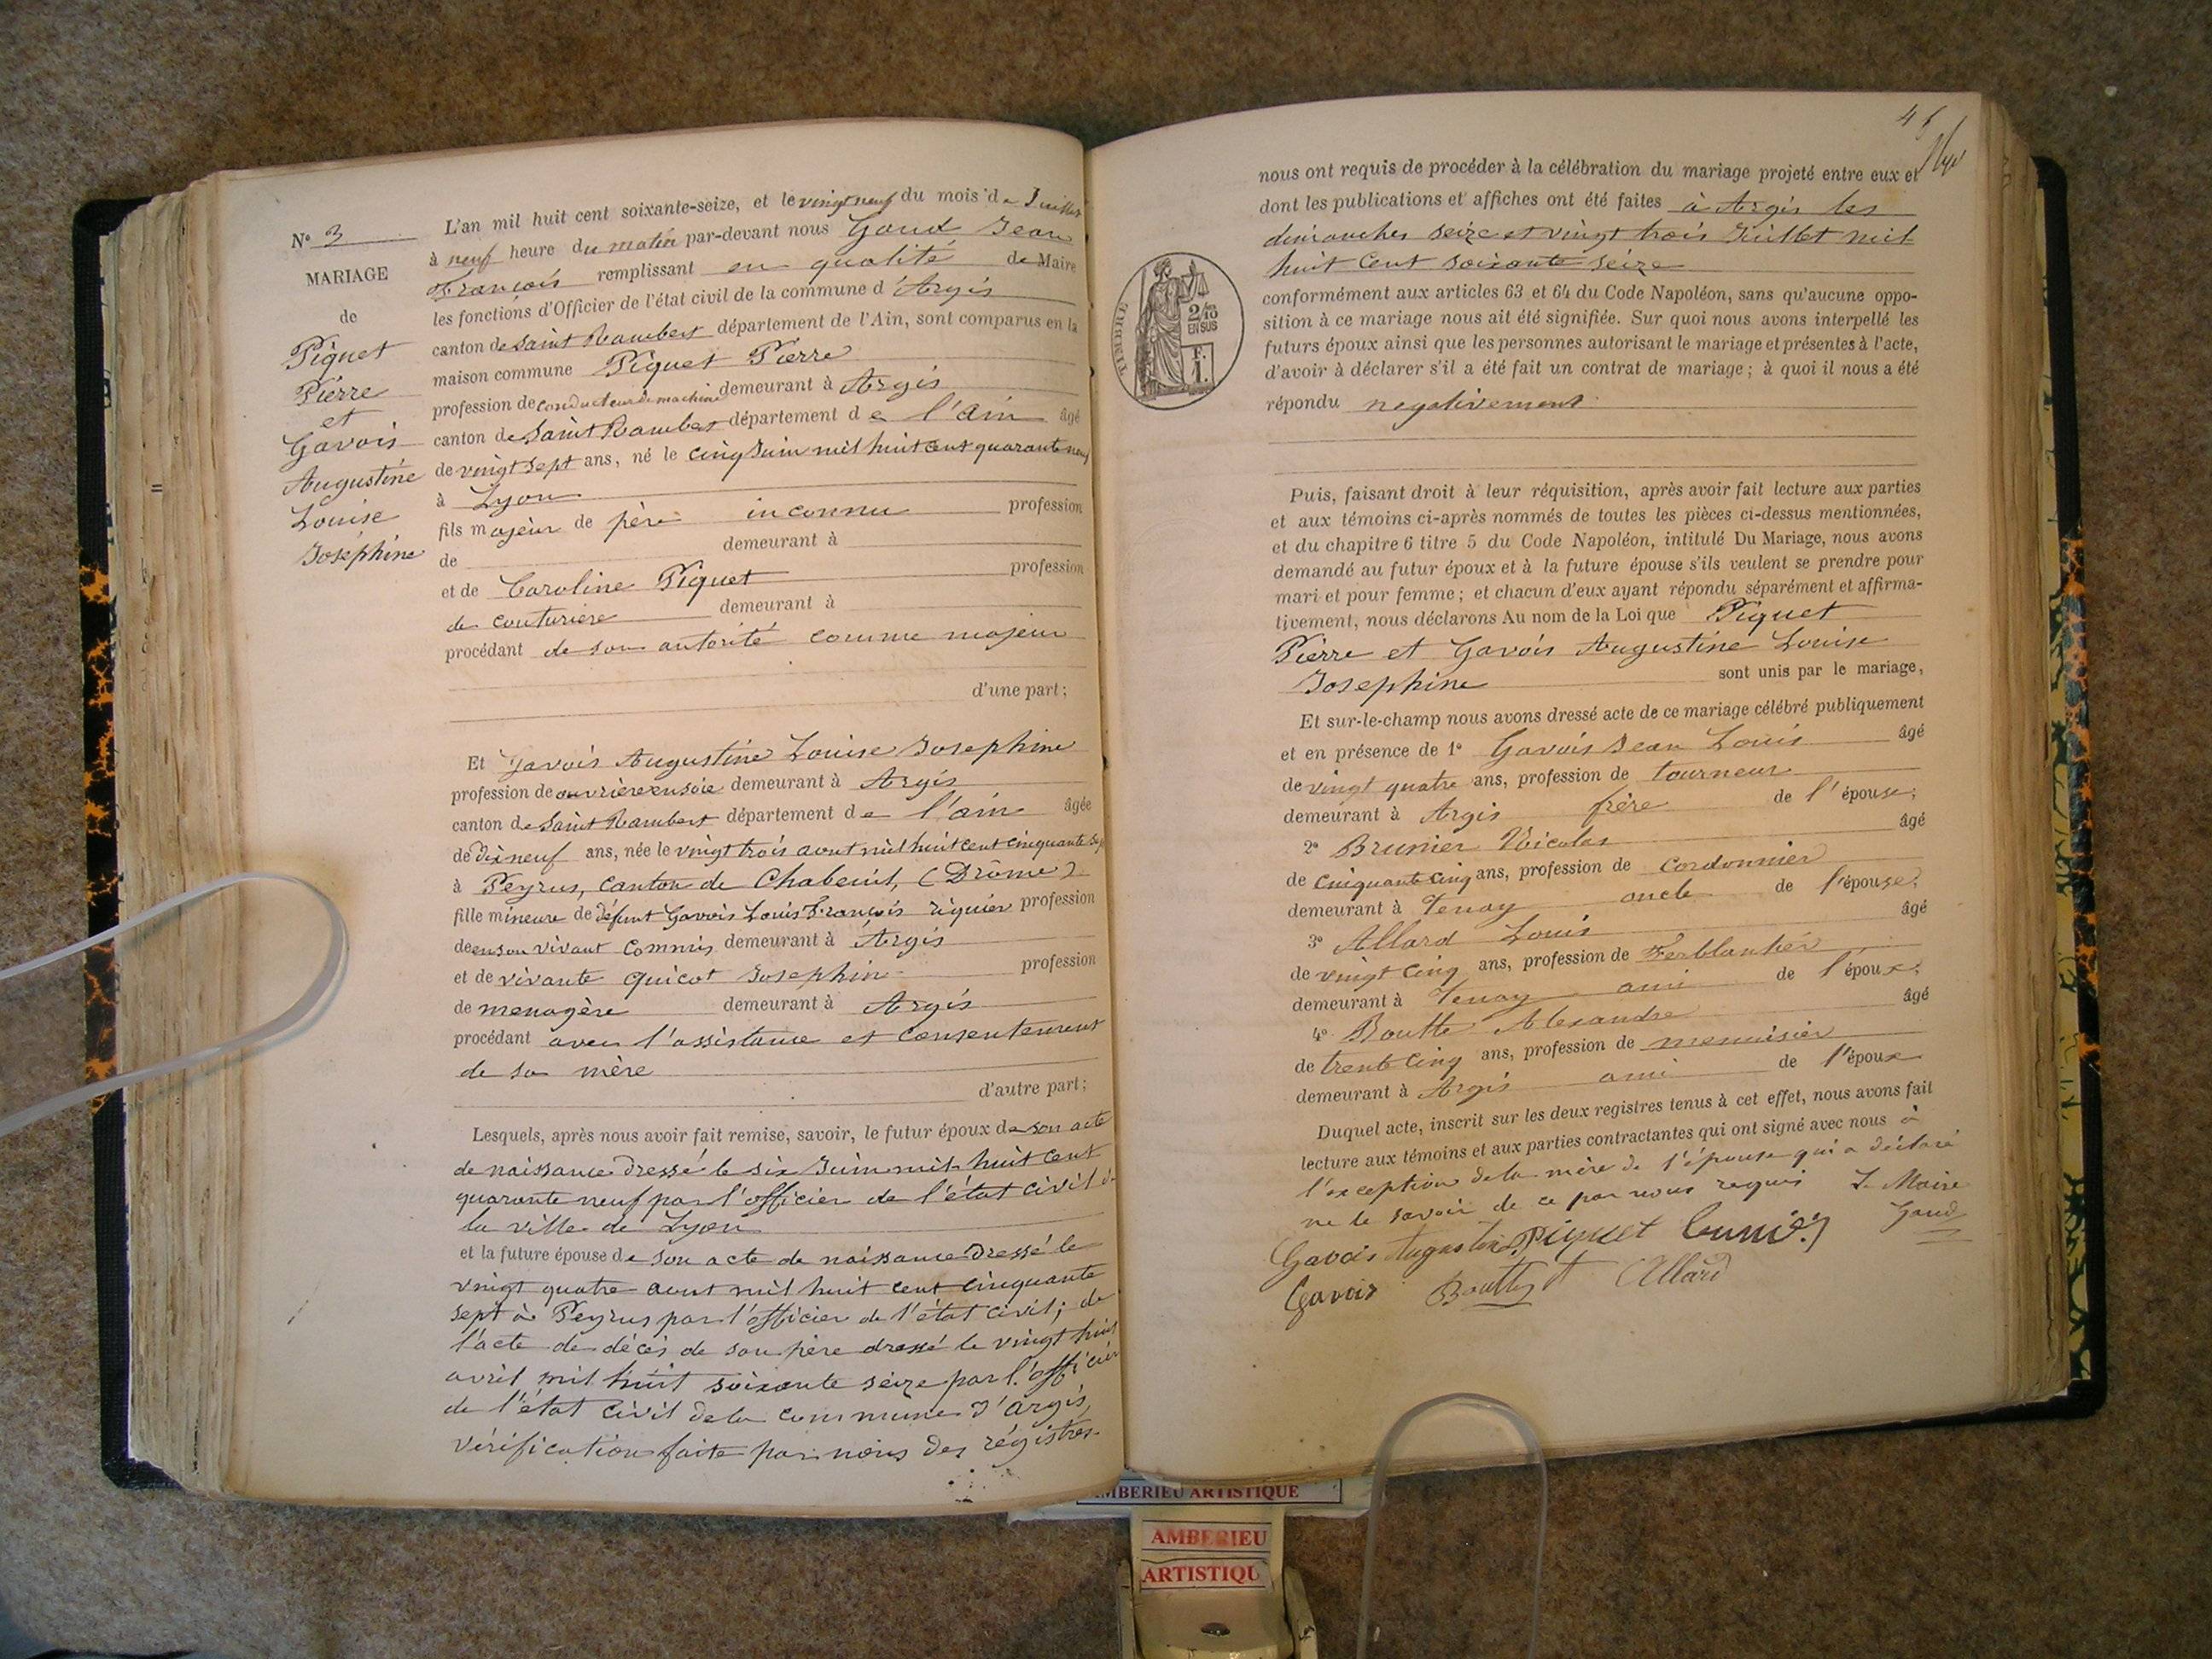 N° 3
MARIAGE
de
Piquet
Pierre
et
Gavois
Augustine
Louise
Joséphine
L'an mil huit cent soixante-seize, et le vingt neuf du mois de Juillet
à neuf heure du matin par-devant nous Goud Jean
François remplissant en qualité de Maire
les fonctions d'Officier de l'état civil de la commune d'Argis
canton de Saint Rambert département de l'Ain, sont comparus en la
maison commune Piquet Pierre
profession de conducteur de machine demeurant à Argis
canton de Saint Rambert département de l'ain âgé
de vingt sept ans, né le cinq Juin mil huit cent quarante neuf
à Lyon
fils majeur de père inconnu profession
de demeurant à
et de Caroline Piquet profession
de couturière demeurant à
procédant de son autorité comme majeur
d'une part;
Et Gavois Augustine Louise Josephine
profession de ouvrière en soie demeurant à Argis
canton de Saint Rambert département de l'ain âgée
de dix neuf ans, née le vingt trois aout mil huit cent cinquante sept
à Peyrus, canton de Chabeuil, (Drôme)
fille mineure de défunt Gavois Louis François riquier profession
de en son vivant commis demeurant à Argis
et de vivante Quicot Josephine profession
de menagère demeurant à Argis
procédant avec l'assistance et consentement
de sa mère
d'autre part;
Lesquels, après nous avoir fait remise, savoir, le futur époux de son acte
de naissance dressé le six Juin mil huit cent
quarante neuf par l'officier de l'état civil de
la ville de Lyon
et la future épouse de son acte de naissance dressé le
vingt quatre aout mil huit cent cinquante
sept à Peyrus par l'officier de l'état civil; de
l'acte de décès de son père dressé le vingt huit
avril mil huit soixante seize par l'officier
de l'état civil de la commune d'Argis,
vérification faite par nous des régistres
45
nous ont requis de procéder à la célébration du mariage projeté entre eux et
dont les publications et affiches ont été faites à Argis les
dimanches seize et vingt trois Juillet mil
huit cent soixante seize
TIMBRE
2/10
EN SUS
F.
1.
conformément aux articles 63 et 64 du Code Napoléon, sans qu'aucune oppo-
sition à ce mariage nous ait été signifiée. Sur quoi nous avons interpellé les
futurs époux ainsi que les personnes autorisant le mariage et présentes à l'acte,
d'avoir à déclarer s'il a été fait un contrat de mariage; à quoi il nous a été
répondu negativement
Puis, faisant droit à leur réquisition, après avoir fait lecture aux parties
et aux témoins ci-après nommés de toutes les pièces ci-dessus mentionnées,
et du chapitre 6 titre 5 du Code Napoléon, intitulé Du Mariage, nous avons
demandé au futur époux et à la future épouse s'ils veulent se prendre pour
mari et pour femme; et chacun d'eux ayant répondu séparément et affirma-
tivement, nous déclarons Au nom de la Loi que Piquet
Pierre et Gavois Augustine Louise
Josephine sont unis par le mariage,
Et sur-le-champ nous avons dressé acte de ce mariage célébré publiquement
et en présence de 1° Gavois Jean Louis âgé
de vingt quatre ans, profession de tourneur
demeurant à Argis frère de l'épouse;
2° Brunier Nicolas âgé
de cinquante cinq ans, profession de cordonnier
demeurant à Tenay oncle de l'épouse,
3° Allard Louis âgé
de vingt cinq ans, profession de Ferblantier
demeurant à Tenay ami de l'époux;
4° Boutte Alexandre âgé
de trente cinq ans, profession de menuisier
demeurant à Argis ami de l'époux
Duquel acte, inscrit sur les deux registres tenus à cet effet, nous avons fait
lecture aux témoins et aux parties contractantes qui ont signé avec nous à
l'exception de la mère de l'épouse qui a déclaré
ne le savoir de ce par nous requis L. Maire
Gavois Augustine Piquet Goud
Gavois Boutte A Allard
AMBERIEU ARTISTIQUE
AMBERIEU
ARTISTIQU